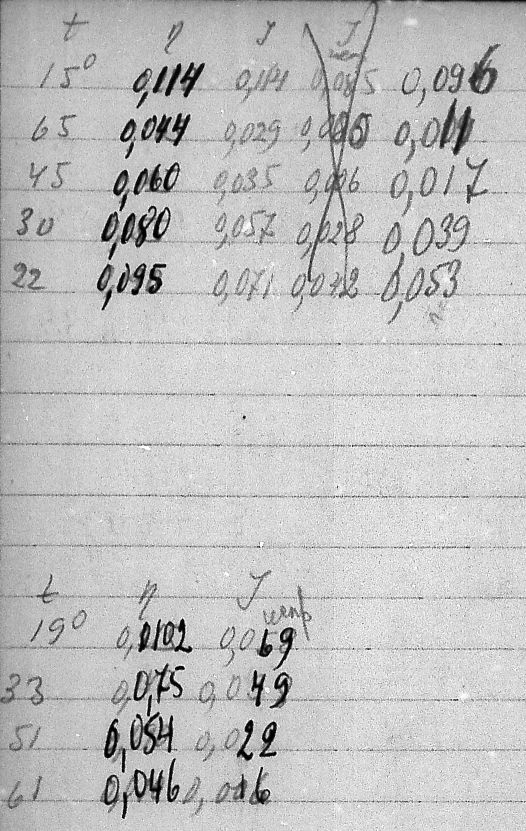 t η J J испр
15° 0,114 0,114 0,096
65 0,044 0,029 0,011
45 0,060 0,035 0,006 0,017
30 0,080 0,057 0,028 0,039
22 0,095 0,071 0,042 0,053
t η J испр
19° 0,0102 0,069
33 0,075 0,049
51 0,054 0,022
61 0,046 0,016